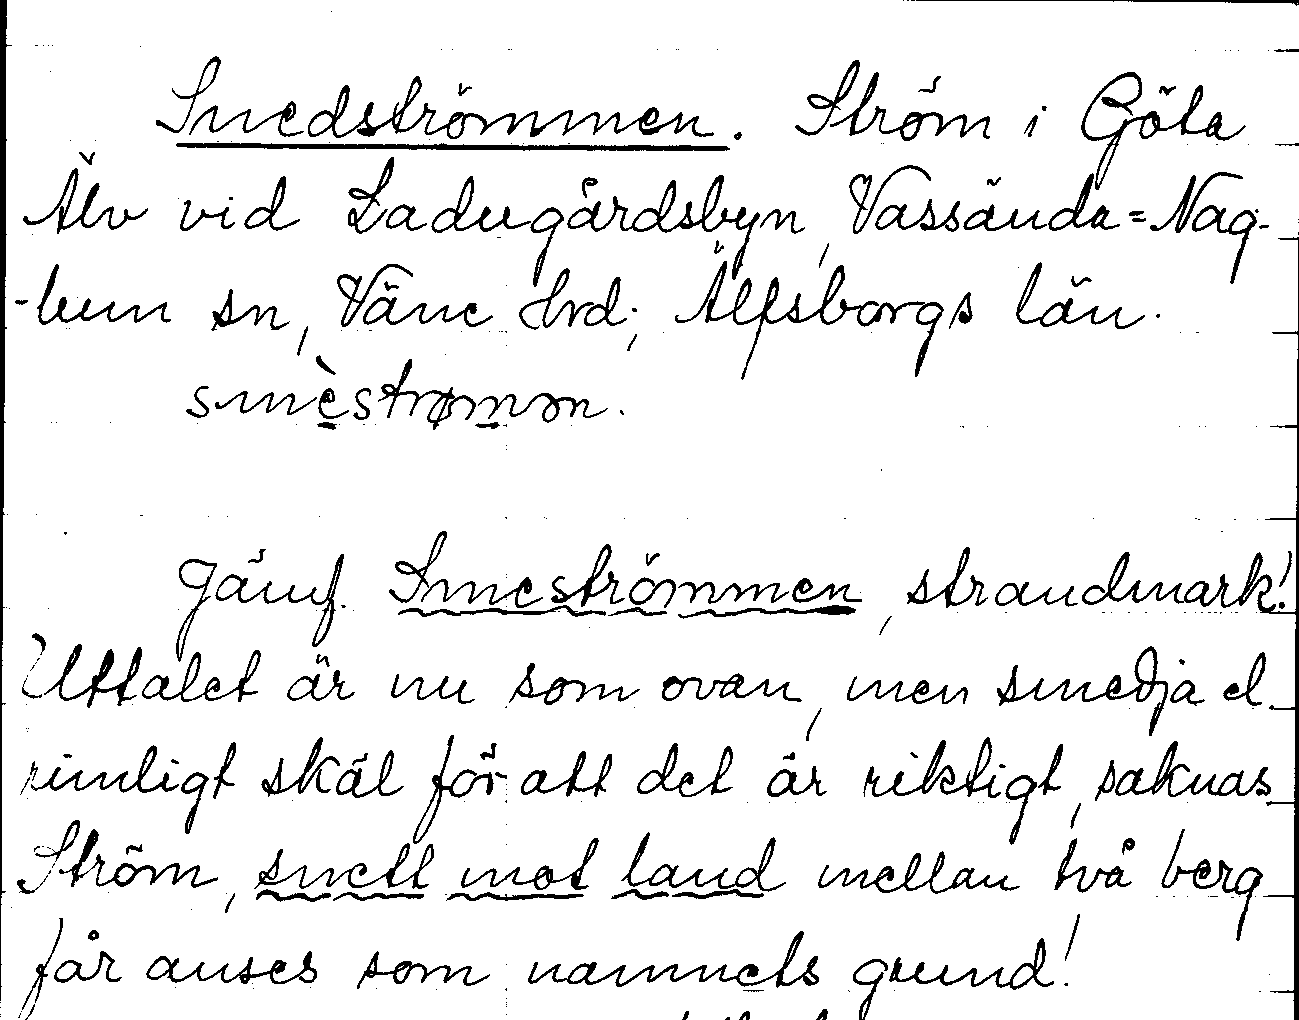 Smedströmmen. Ström i Göta
Älv vid Ladugårdsbyn, Vassända=Nag-
-lum sn, Väne Hrd; Älfsborgs län.
smèstrømən.
Jämf. Smeströmmen, strandmark!
Uttalet är nu som ovan, men smedja el.
rimligt skäl för att det är riktigt, saknas
Ström, snett mot land mellan två berg
får anses som namnets grund!